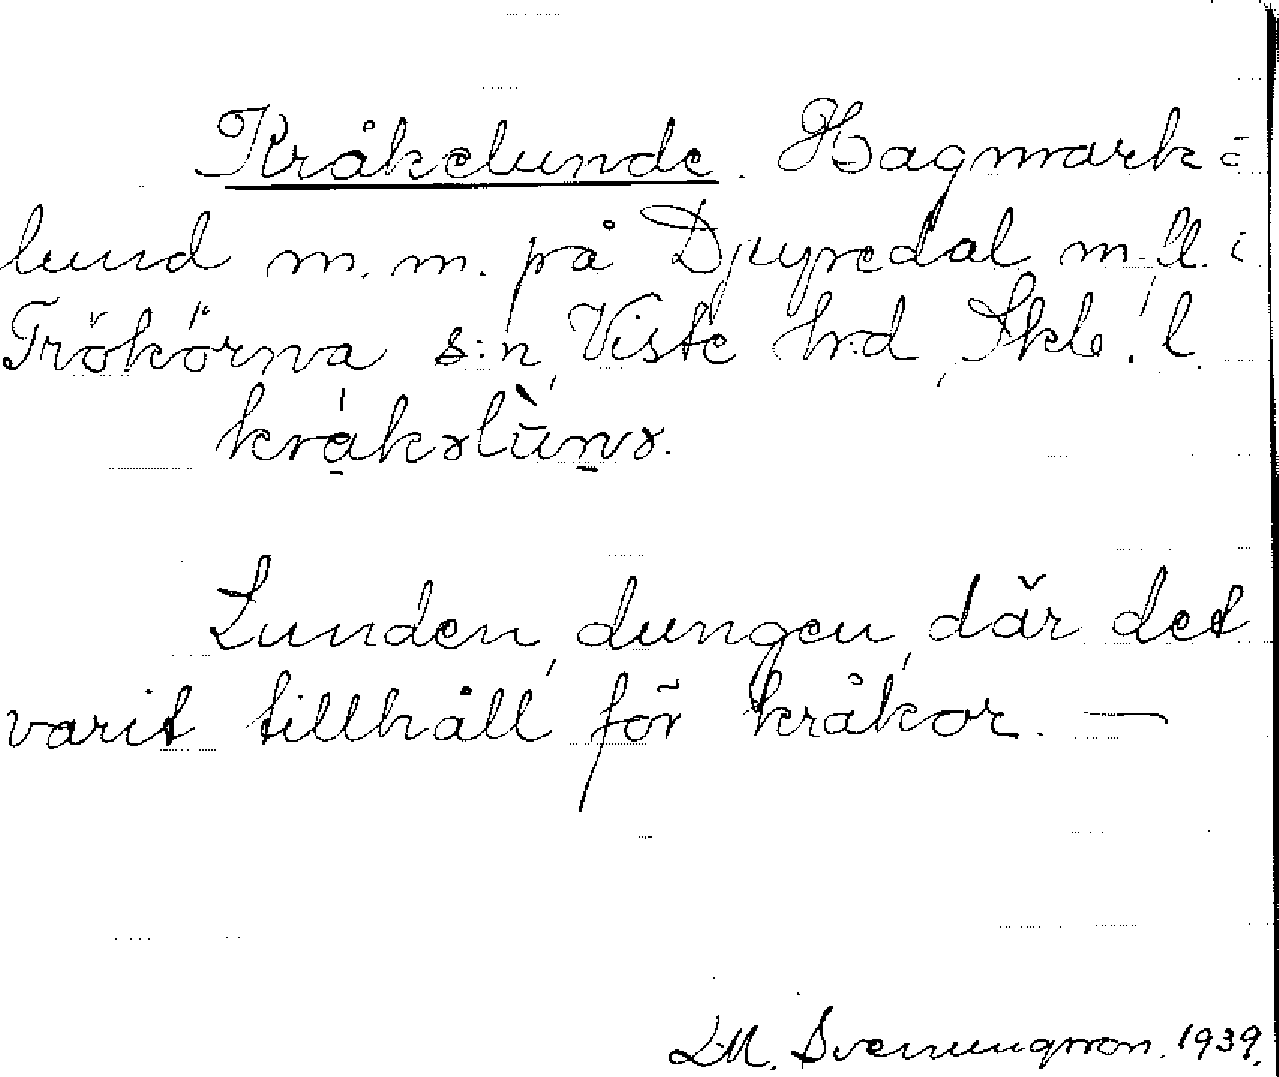 Kråkelunde. Hagmark =
lund m.m. på Djupedal m.fl. i
Frökörna s:n, Viste hrd, Skb. l.
Lunden, dungen, där det
varit tillhåll för kråkor. —
L.M. Svenungsson. 1939.